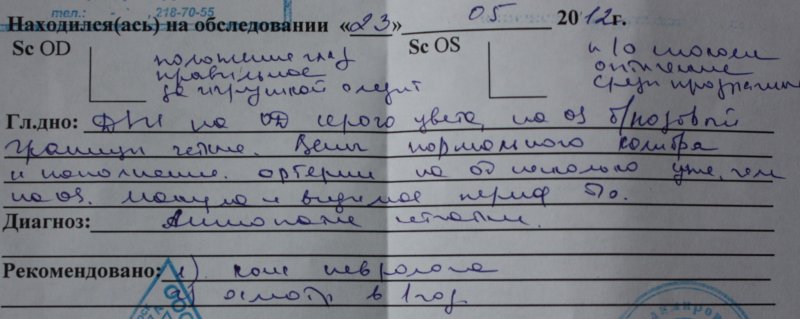 тел.: 218-70-55
Находился(ась) на обследовании «23» 05 2012г.
Sc OD положение глаз Sc OS
правильное оптические
за игрушкой следит среды прозрачные
Гл.дно: ДЗН на OD серого цвета, на OS б/розовый
границы четкие. Вены нормального калибра
и наполнения. артерии на OD несколько уже, чем
на OS. макула и видимая перифер б/о.
Диагноз: Ангиопатия сетчатки.
Рекомендовано: 1). конс невролога
2) осмотр в 1 год